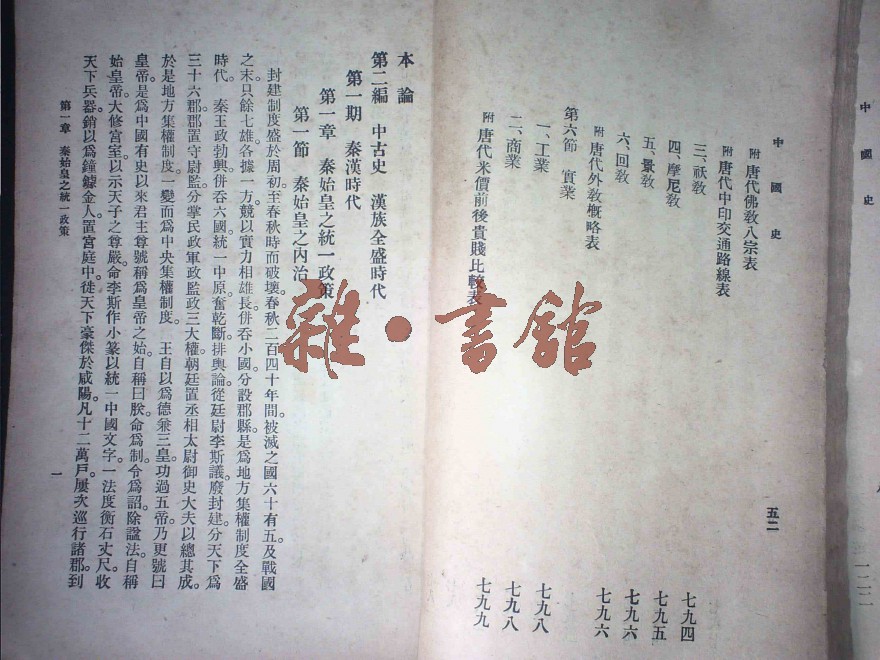 中國史
五二
附 唐代佛敎八宗表
附 唐代中印交通路線表
三、祅敎 七九四
四、摩尼敎 七九五
五、景敎 七九六
六、回敎 七九六
附 唐代外敎槪略表
第六節 實業
一、工業 七九八
二、商業 七九八
附 唐代米價前後貴賤比較表 七九九
本論
第二編 中古史 漢族全盛時代
第一期 秦漢時代
第一章 秦始皇之統一政策
第一節 秦始皇之內治
封建制度盛於周初至春秋時而破壞。春秋二百四十年間。被滅之國六十有五。及戰國
之末只餘七雄各據一方。競以實力相雄長。併吞小國分設郡縣。是爲地方集權制度全盛
時代。秦王政勃興。併吞六國。統一中原。奮乾斷。排輿論。從廷尉李斯議。廢封建。分天下爲
三十六郡。郡置守尉監。分掌民政軍政監政三大權。朝廷置丞相太尉御史大夫以總其成。
於是地方集權制度。一變而爲中央集權制度。王自以爲德兼三皇。功過五帝。乃更號曰
皇帝。是爲中國有史以來君主尊號稱爲皇帝之始。自稱曰朕。命爲制。令爲詔。除諡法。自稱
始皇帝。大修宮室。以示天子之尊嚴。命李斯作小篆。以統一中國文字。一法度衡石丈尺。收
天下兵器。銷以爲鐘鐻金人。置宮庭中。徙天下豪傑於咸陽。凡十二萬戶。屢次巡行諸郡。到
第一章 秦始皇之統一政策
一
中國史
雜·書館